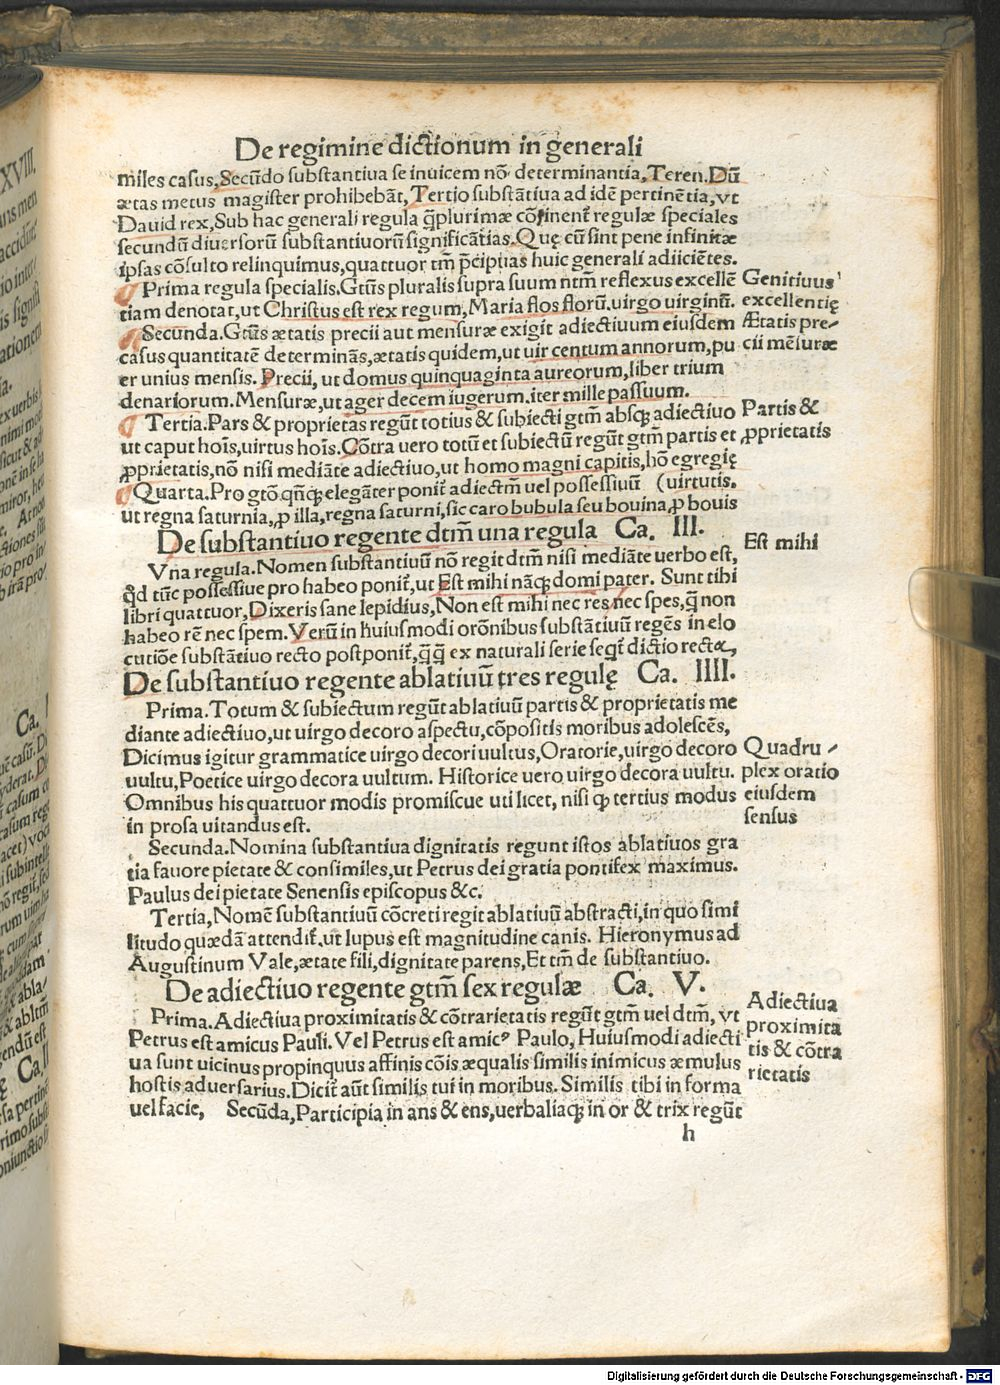 De regimine dictionum in generali
miles casus, Secūdo substantiua se inuicem nō determinantia, Teren. Dū
ætas metus magister prohibebāt, Tertio substātiua ad idē pertinētia, vt
Dauid rex, Sub hac generali regula q̄plurimæ cōtinent̄ regulæ speciales
secundū diuersorū substantiuorū significātias. Quę cū sint pene infinitæ
ipsas cōsulto relinquimus, quattuor tm̄ p̄cipuas huic generali adiiciētes.
Prima regula specialis. Gtūs pluralis supra suum ntm̄ reflexus excellē
Genitiuus
tiam denotat, ut Christus est rex regum, Maria flos florū. uirgo uirginū.
excellentię
Secunda. Gtūs ætatis precii aut mensuræ exigit adiectiuum eiusdem
Ætatis pre-
casus quantitatē determinās, ætatis quidem, ut uir centum annorum, pu
cii mēsuræ
er unius mensis. Precii, ut domus quinquaginta aureorum, liber trium
denariorum. Mensuræ, ut ager decem iugerum. iter mille passuum.
Tertia. Pars & proprietas regūt totius & subiecti gtm̄ absqꝫ adiectiuo
Partis &
ut caput hoīs, uirtus hoīs. Cōtra uero totū et subiectū regūt gtm̄ partis et
ꝓprietatis
ꝓprietatis, nō nisi mediāte adiectiuo, ut homo magni capitis, hō egregię
Quarta. Pro gtō. qn̄qꝫ elegāter ponit̄ adiectm̄ uel possessiuū (uirtutis.
ut regna saturnia, ꝓ illa, regna saturni, sic caro bubula seu bouina, ꝓ bouis
De substantiuo regente dtm̄ una regula Ca. III.
Est mihi
Vna regula. Nomen substantiuū nō regit dtm̄ nisi mediāte uerbo est,
qd̄ tūc possessiue pro habeo ponit̄, ut Est mihi nāqꝫ domi pater. Sunt tibi
libri quattuor, Dixeris sane lepidius, Non est mihi nec res nec spes, q̄ non
habeo rē nec spem. Verū in huiusmodi orōnibus substātiuū regēs in elo
cutiōe substātiuo recto postponit̄, q̄q̄ ex naturali serie seqt̄ dictio recta,
De substantiuo regente ablatiuū tres regulę Ca. IIII.
Prima. Totum & subiectum regūt ablatiuū partis & proprietatis me
diante adiectiuo, ut uirgo decoro aspectu, cōpositis moribus adolescēs,
Dicimus igitur grammatice uirgo decori uultus, Oratorie, uirgo decoro
Quadru
uultu, Poetice uirgo decora uultum. Historice uero uirgo decora uultu.
plex oratio
Omnibus his quattuor modis promiscue uti licet, nisi qꝫ tertius modus
eiusdem
in prosa uitandus est.
sensus
Secunda. Nomina substantiua dignitatis regunt istos ablatiuos gra
tia fauore pietate & consimiles, ut Petrus dei gratia pontifex maximus.
Paulus dei pietate Senensis episcopus &c.
Tertia, Nomē substantiuū cōcreti regit ablatiuū abstracti, in quo simi
litudo quædā attendit̄. ut lupus est magnitudine canis. Hieronymus ad
Augustinum Vale, ætate fili, dignitate parens, Et tm̄ de substantiuo.
De adiectiuo regente gtm̄ sex regulæ Ca. V.
Prima. Adiectiua proximitatis & cōtrarietatis regūt gtm̄ uel dtm̄, vt
Adiectiua
Petrus est amicus Pauli. Vel Petrus est amicꝰ Paulo, Huiusmodi adiecti
proximita
ua sunt uicinus propinquus affinis cōis æqualis similis inimicus æmulus
tis & cōtra
hostis aduersarius. Dicit̄ aūt similis tui in moribus. Similis tibi in forma
rietatis
uel facie, Secūda, Participia in ans & ens, uerbaliaqꝫ in or & trix regūt
h
Digitalisierung gefördert durch die Deutsche Forschungsgemeinschaft - DFG